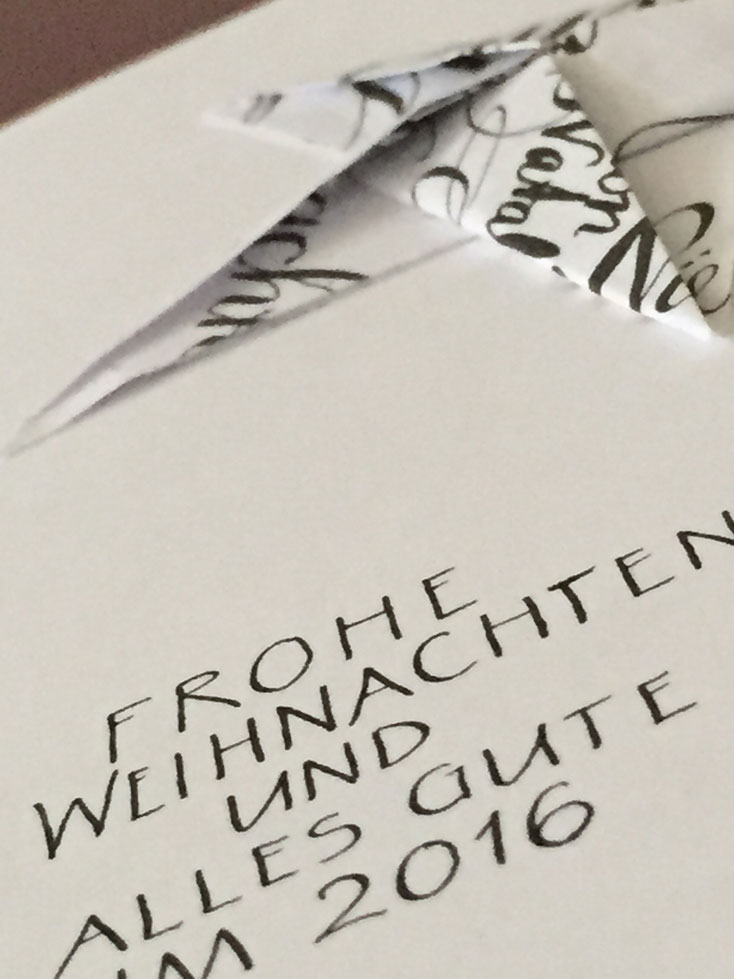 Nie
FROHE
WEIHNACHTEN
UND
ALLES GUTE
IM 2016